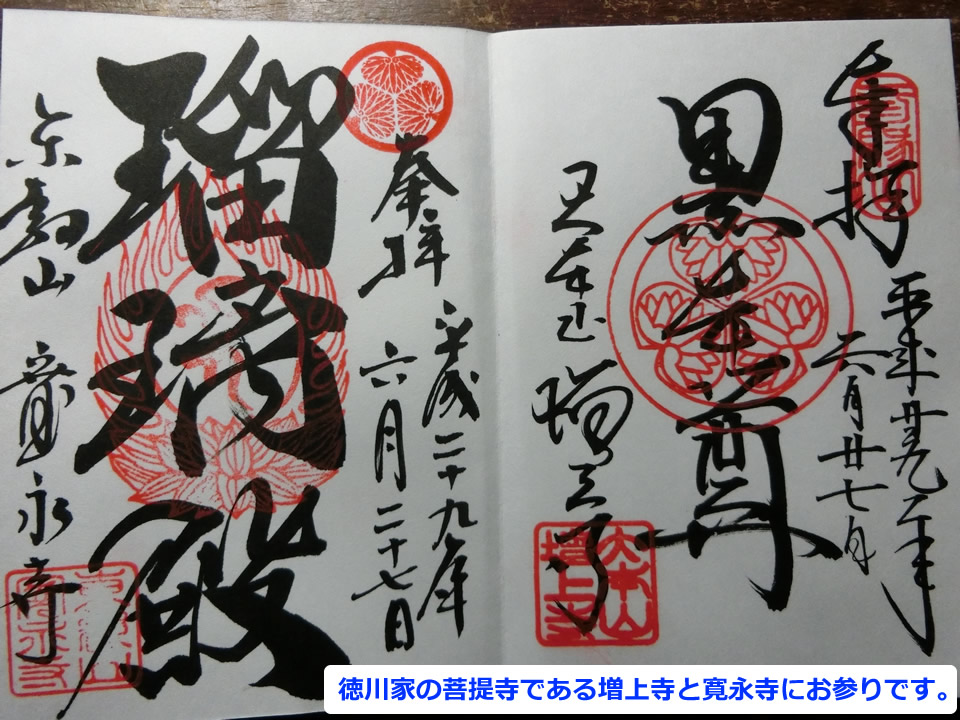 奉拝
平成廿九年
六月廿七日
黒本尊
大本山 増上寺
大本山
増上寺
奉拝
平成二十九年
六月二十七日
瑠璃殿
東叡山 寛永寺
東叡山
寛永寺
徳川家の菩提寺である増上寺と寛永寺にお参りです。